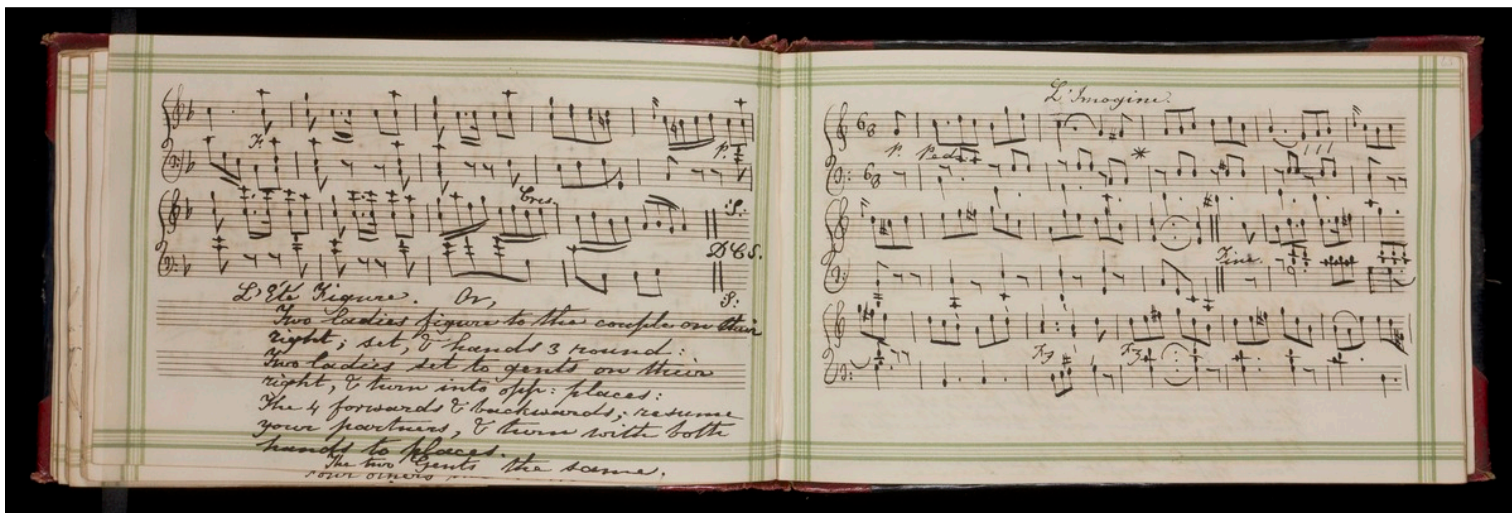 Fz
P.
Cres.
:S:
D C S.
S:
L'Eté Figure. Or,
Two ladies figure to the couple on their
right; set, & hands 3 round:
Two ladies set to gents on their
right, & turn into opp: places:
The 4 forwards & backwards; resume
your partners, & turn with both
hands to places.
The two Gents the same.
Four others
L'Imogine.
6 8
P. Ped:
6 8
Fine.
Fz Fz